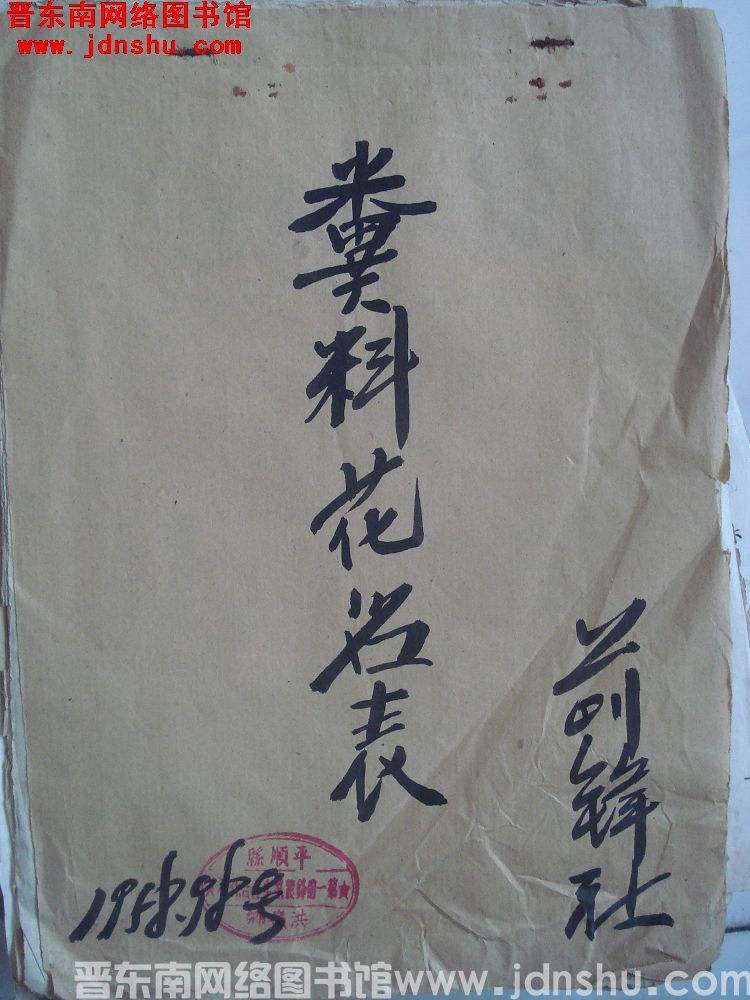 晋东南网络图书馆
www.jdnshu.com
粪料花名表
前锋社
平順縣
晋东南网络图书馆www.jdnshu.com